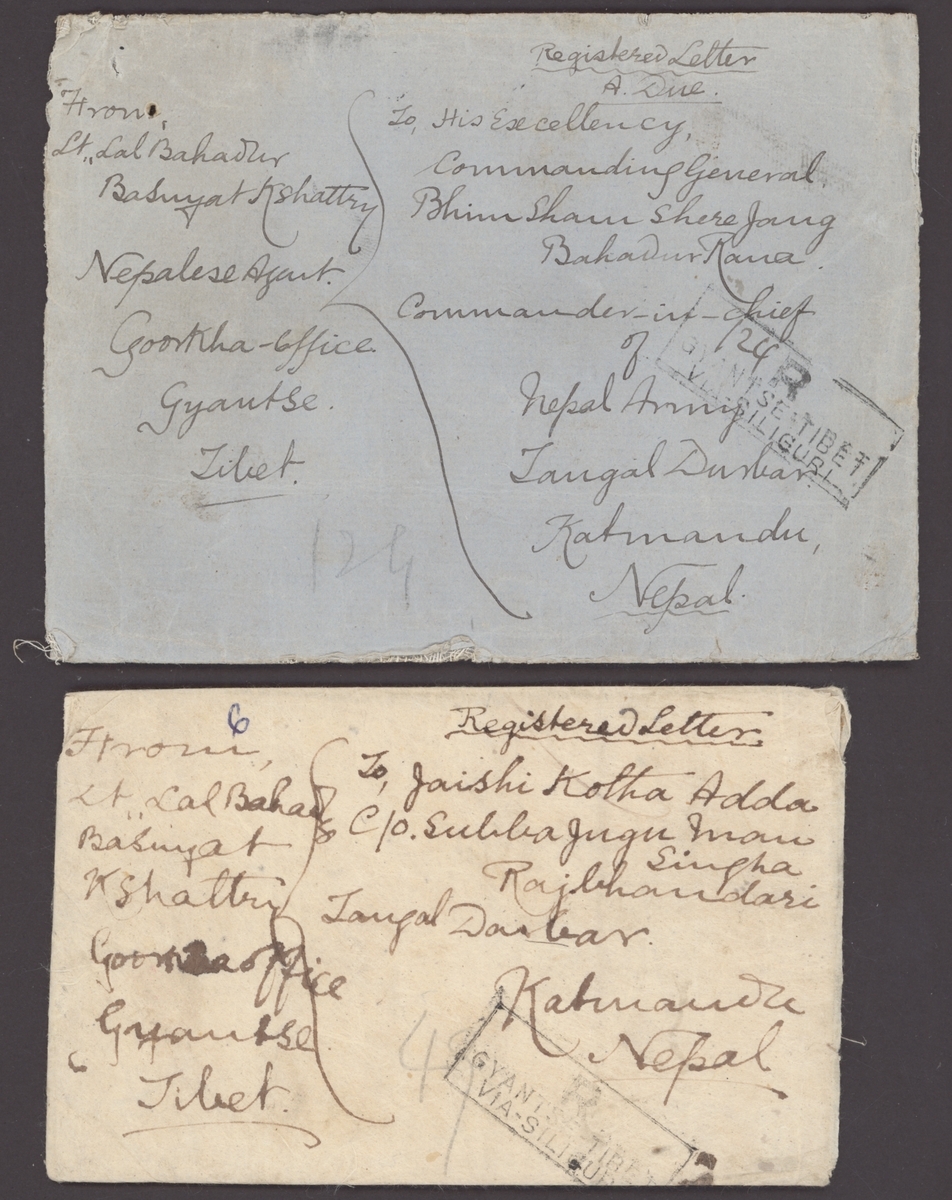 Registered Letter
A. Due.
From,
Lt,, Lal Bahadur
Basnyat Kshattry
Nepalese Agent.
Goorkha-Office
Gyantse.
Tibet.
To, His Excellency,
Commanding General,
Bhim Sham Shere Jang
Bahadur Rana.
Commander-in-Chief
of
Nepal Army
Tangal Durbar.
Katmandu,
Nepal.
124
R
GYANTSE-TIBET
VIA-SILIGURI
124
6
Registered Letter.
From,
Lt,, Lal Bahadur
Basnyat
Kshattry
Goorkha office
Gyantse
Tibet.
To, Jaishi Kotha Adda
C/o. Subba Jugu Man
Singha
Rajbhandari
Tangal Darbar.
Katmandu
Nepal
49
R
GYANTSE TIBET
VIA-SILIGURI